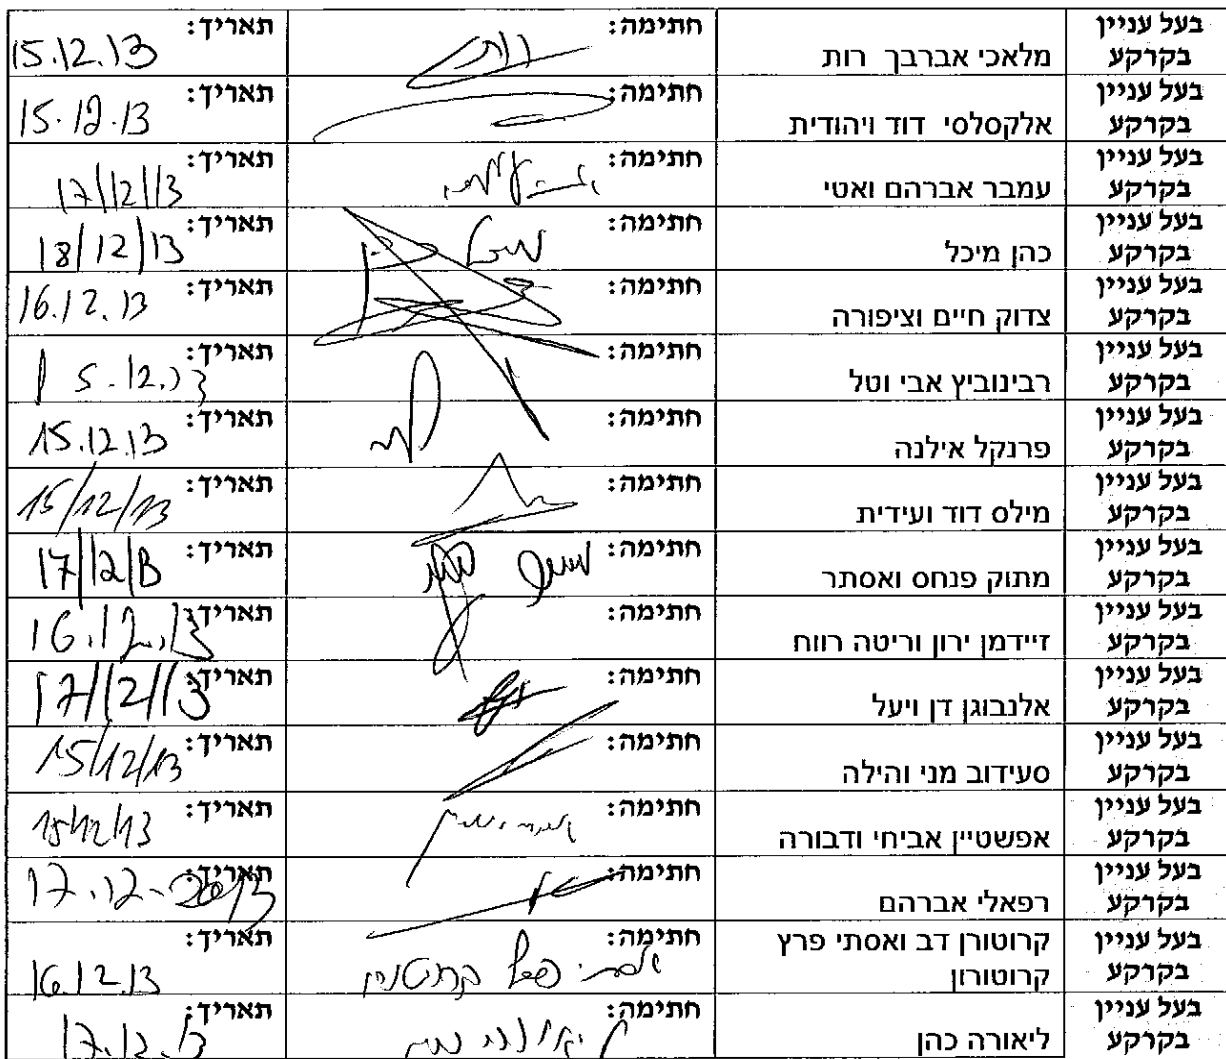 בעל עניין בקרקע מלאכי אברבך רות חתימה: רות תאריך: 15.12.13
בעל עניין בקרקע אלקסלסי דוד ויהודית חתימה: תאריך: 15.12.13
בעל עניין בקרקע עמבר אברהם ואטי חתימה: תאריך: 17/12/13
בעל עניין בקרקע כהן מיכל חתימה: תאריך: 18/12/13
בעל עניין בקרקע צדוק חיים וציפורה חתימה: תאריך: 16.12.13
בעל עניין בקרקע רבינוביץ אבי וטל חתימה: תאריך: 15.12.13
בעל עניין בקרקע פרנקל אילנה חתימה: תאריך: 15.12.13
בעל עניין בקרקע מילס דוד ועידית חתימה: תאריך: 15/12/13
בעל עניין בקרקע מתוק פנחס ואסתר חתימה: תאריך: 17/12/13
בעל עניין בקרקע זיידמן ירון וריטה רווח חתימה: תאריך: 16.12.13
בעל עניין בקרקע אלנבוגן דן ויעל חתימה: תאריך: 17/12/13
בעל עניין בקרקע סעידוב מני והילה חתימה: תאריך: 15/12/13
בעל עניין בקרקע אפשטיין אביחי ודבורה חתימה: תאריך: 15/12/13
בעל עניין בקרקע רפאלי אברהם חתימה: תאריך: 17.12-2013
בעל עניין בקרקע קרוטורן דב ואסתי פרץ קרוטורון חתימה: תאריך: 16.12.13
בעל עניין בקרקע ליאורה כהן חתימה: תאריך: 17.12.13